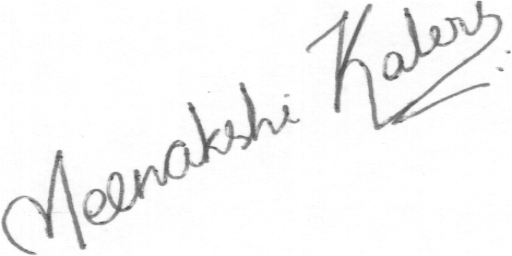 Meenakshi Kalers